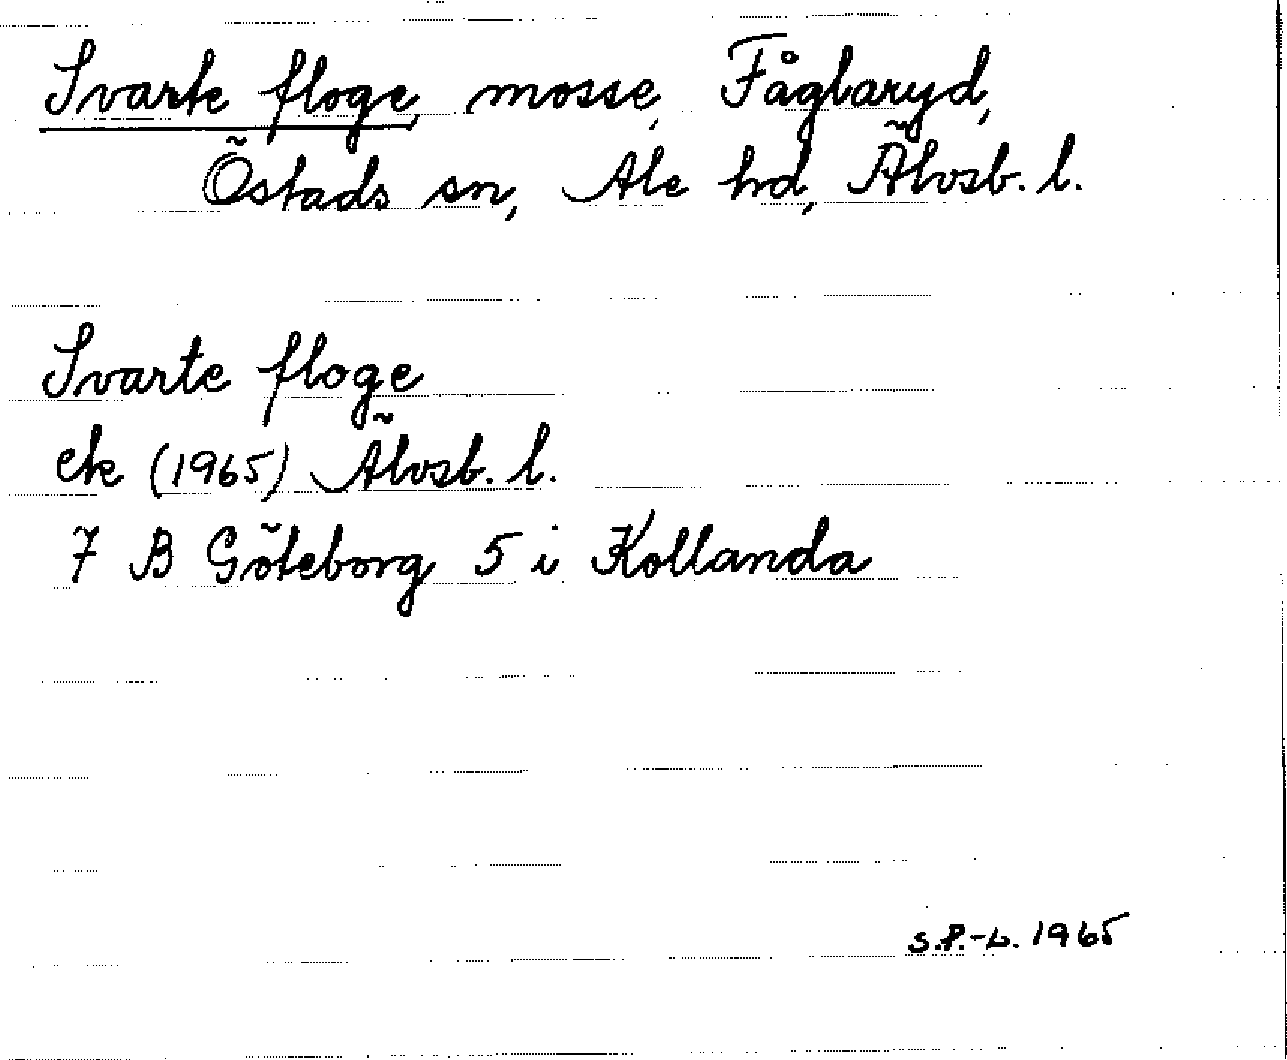 Svarte floge, mosse, Fåglaryd,
Östads sn, Ale hd, Älvsb. l.
Svarte floge
ek (1965) Älvsb. l.
7 B Göteborg 5 i Kollanda
S.P.-L. 1965